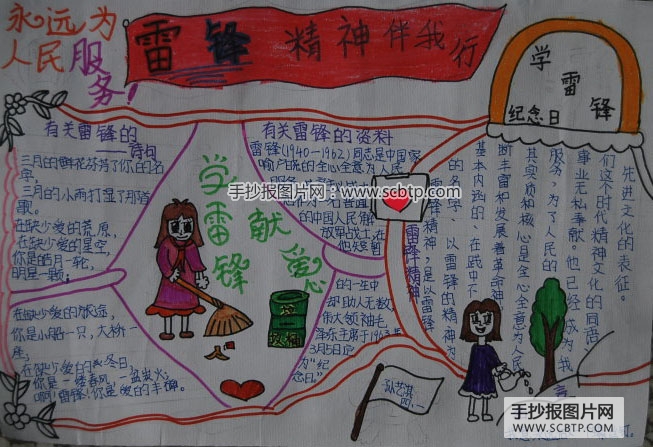 永远为
人民服
务!
雷锋精神伴我行
学雷锋
纪念日
有关雷锋的
——诗句
三月的鲜花芬芳了你的名
字。
三月的小雨打湿了那首
歌。
在缺少爱的荒原,
在缺少爱的星空,
你是皓月一轮,
明星一颗;
在缺少爱的旅途,
你是小船一只,大桥一
座,
在缺少爱的冬日,
你是一缕春风,一盆炭火;
啊!雷锋!你是爱的丰碑。
学雷锋
献爱心
有关雷锋的资料
雷锋(1940—1962)同志是中国家
喻户晓的全心全意为人民
的中国人民解
放军战士,在
他短暂
的一生中
却助人无数
伟大领袖毛
泽东主席于1963年
3月5日
为“纪
念日”
手抄报图片网:www.scbtp.com
雷锋精神
雷锋精神,是以雷锋
的名字
以雷锋的精神为
基本内涵的、在实践中不
断丰富和发展着革命精神
其实质和核心是全心全意为人民
服务,为了人民的
事业无私奉献。他已经成为我
们这个时代精神文化的同语
先进文化的表征。
孙艺淇
四、一
手抄报图片网
WWW.SCBTP.COM